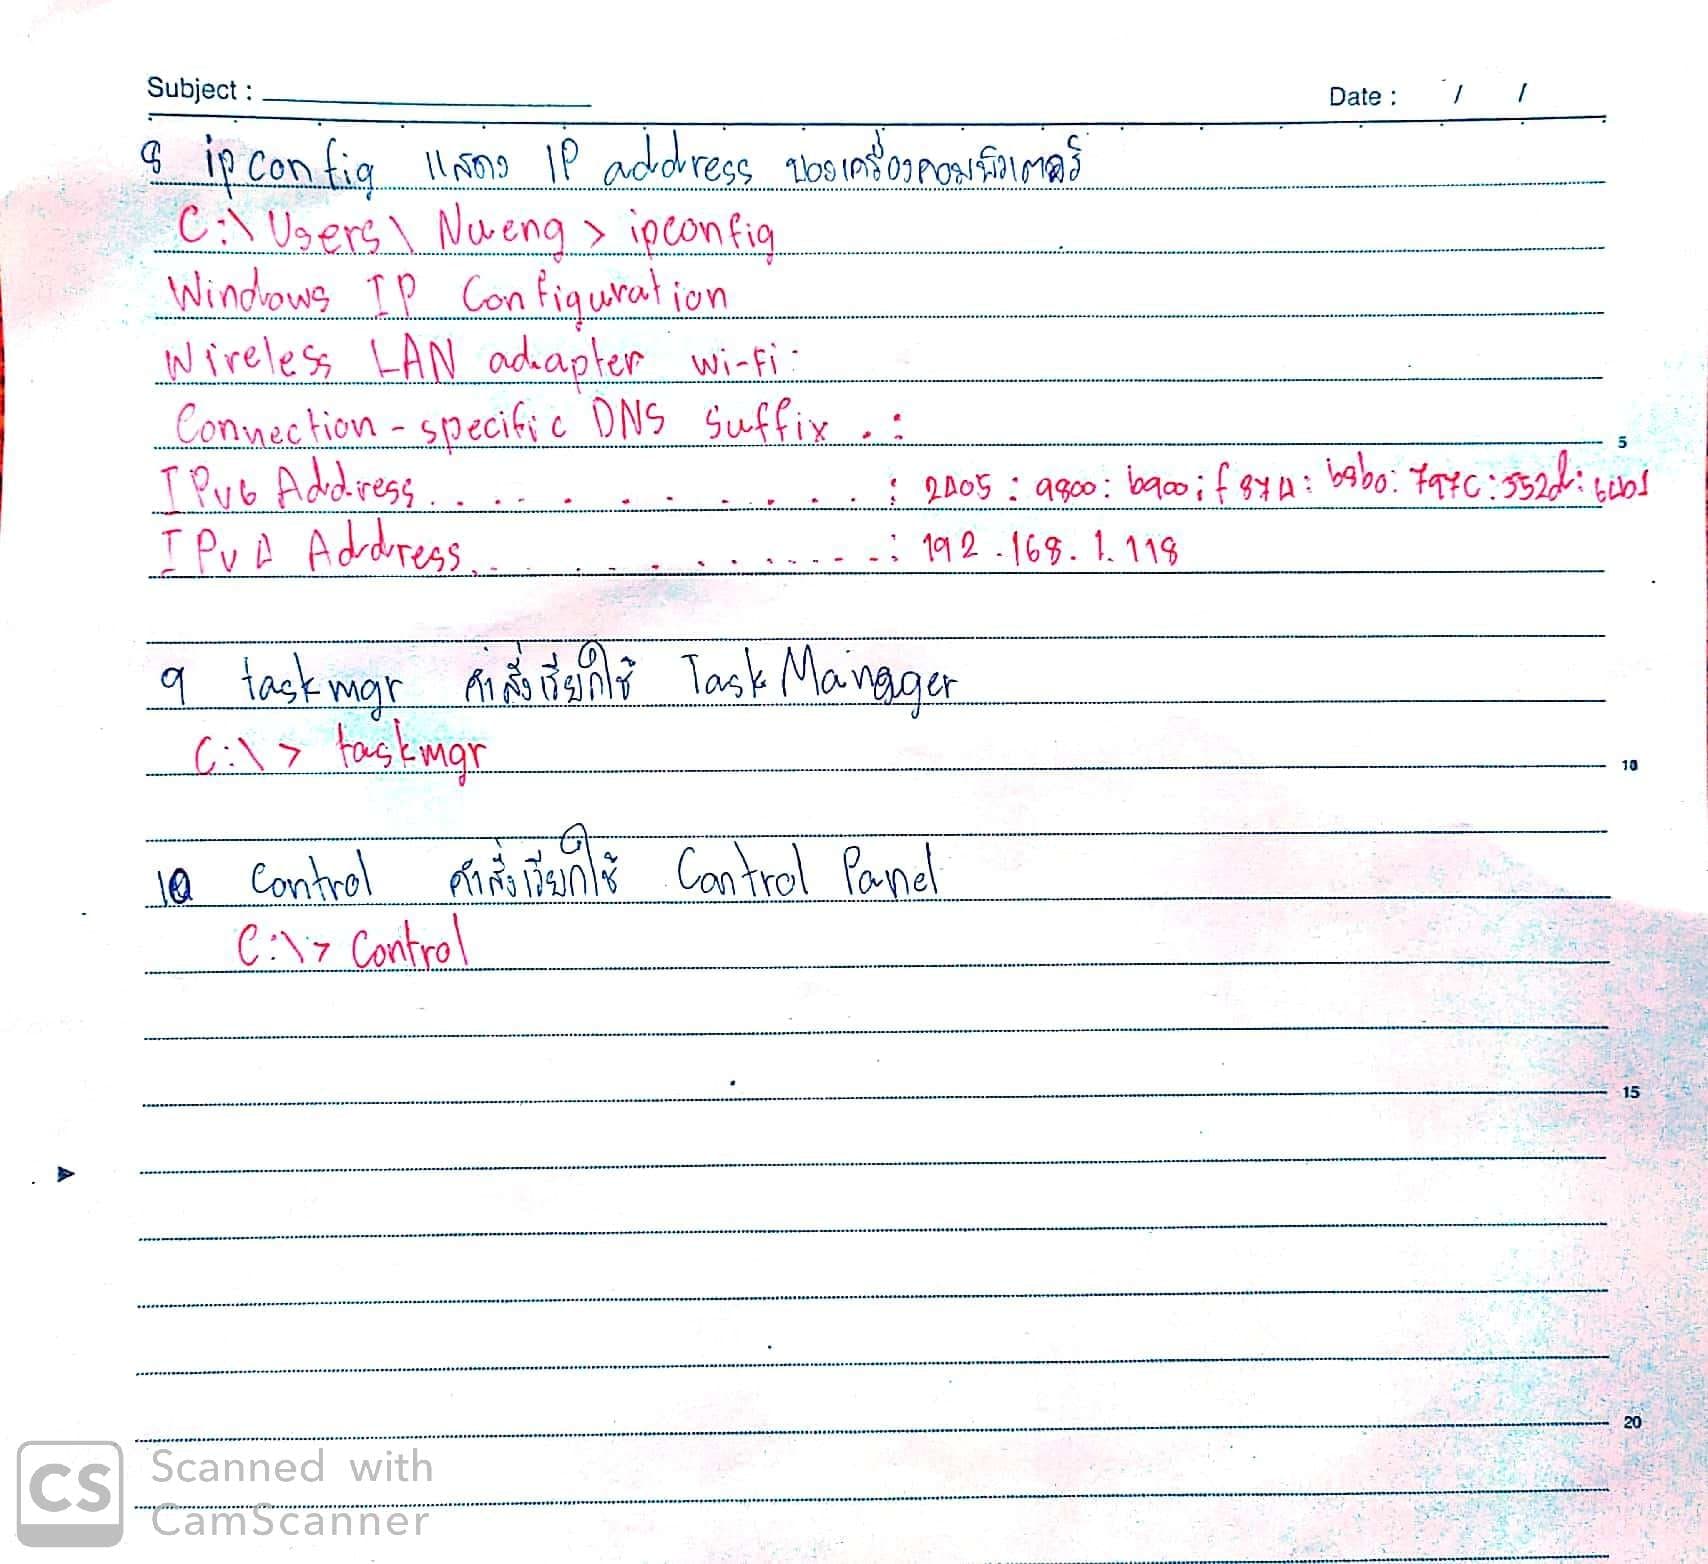 Subject :
Date : / /
8 ipconfig แสดง IP address ของเครื่องคอมพิวเตอร์
C:\Users\Nueng> ipconfig
Windows IP Configuration
Wireless LAN adapter wi-fi:
Connection-specific DNS Suffix . :
5
IPv6 Address. . . . . . . . . . . : 2405 : 9800: b900: f874: b8b0: 797C: 552d:
IPv4 Address. . . . . . . . . . . : 192.168.1.118
9 taskmgr คำสั่งเรียกใช้ Task Manager
C:\> taskmgr
10
10 Control คำสั่งเรียกใช้ Control Panel
C:\> Control
15
20
CS Scanned with
CamScanner